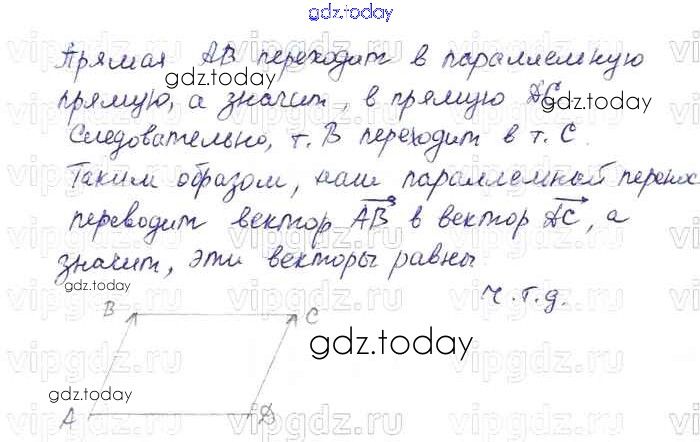 gdz.today
Прямая AB переходит в параллельную
gdz.today
прямую, а значит, в прямую DC.
gdz.today
Следовательно, т. B переходит в т. C.
Таким образом, наш параллельный перенос
переводит вектор AB в вектор DC, а
значит, эти векторы равны.
gdz.today
ч.т.д.
B C
gdz.today
gdz.today
A D
vipgdz.ru